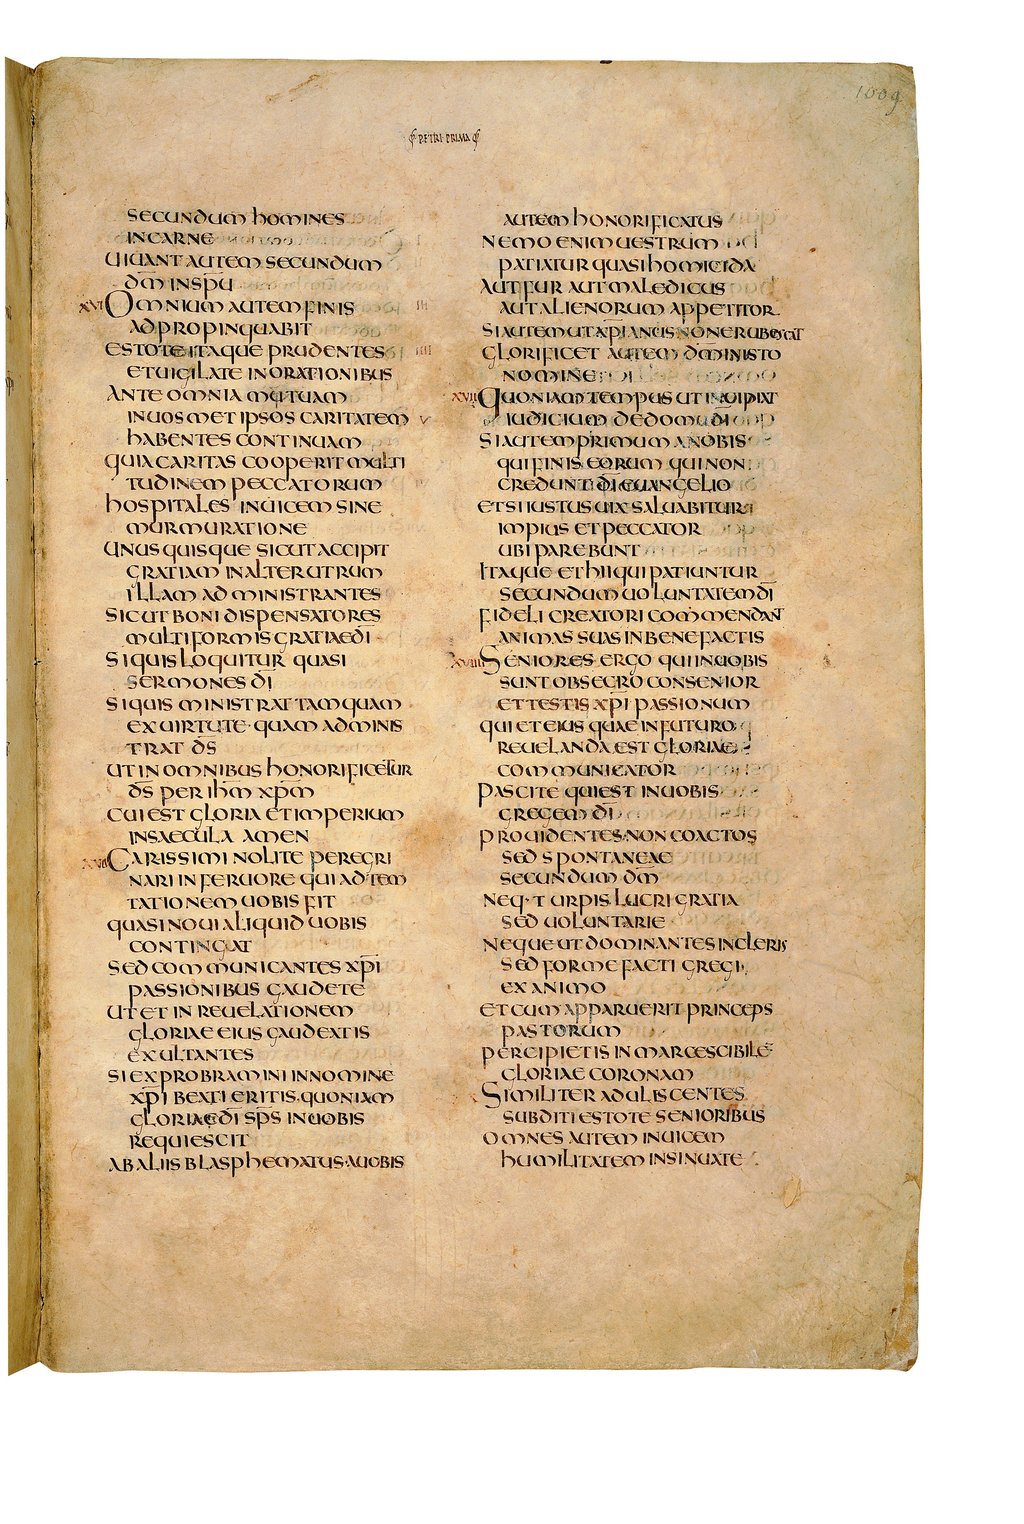 1009
PETRI PRIMA
SECUNDUM HOMINES
IN CARNE
UIUANT AUTEM SECUNDUM
DM̅ IN SPU̅
XVI OMNIUM AUTEM FINIS
ADPROPINQUABIT
ESTOTE ITAQUE PRUDENTES
ET UIGILATE IN ORATIONIBUS
ANTE OMNIA MUTUAM
IN UOSMET IPSOS CARITATEM
HABENTES CONTINUAM
QUIA CARITAS COOPERIT MULTI
TUDINEM PECCATORUM
HOSPITALES INUICEM SINE
MURMURATIONE
UNUSQUISQUE SICUT ACCIPIT
GRATIAM IN ALTERUTRUM
ILLAM ADMINISTRANTES
SICUT BONI DISPENSATORES
MULTIFORMIS GRATIAE DI̅
SI QUIS LOQUITUR QUASI
SERMONES DI̅
SI QUIS MINISTRAT TAMQUAM
EX UIRTUTE QUAM ADMINIS
TRAT DS̅
UT IN OMNIBUS HONORIFICETUR
DS̅ PER IHM̅ XPM̅
CUI EST GLORIA ET IMPERIUM
IN SAECULA AMEN
CARISSIMI NOLITE PEREGRI
NARI IN FERUORE QUI AD TEM
TATIONEM UOBIS FIT
QUASI NOUI ALIQUID UOBIS
CONTINGAT
SED COMMUNICANTES XPI̅
PASSIONIBUS GAUDETE
UT ET IN REUELATIONEM
GLORIAE EIUS GAUDEATIS
EXULTANTES
SI EXPROBRAMINI IN NOMINE
XPI̅ BEATI ERITIS QUONIAM
GLORIAE DI̅ SPS̅ IN UOBIS
REQUIESCIT
AB ALIIS BLASPHEMATUS A UOBIS
AUTEM HONORIFICATUS
NEMO ENIM UESTRUM
PATIATUR QUASI HOMICIDA
AUT FUR AUT MALEDICUS
AUT ALIENORUM APPETITOR
SI AUTEM UT XPIANUS NON ERUBESCAT
GLORIFICET AUTEM DM̅ IN ISTO
NOMINE
XVII QUONIAM TEMPUS UT INCIPIAT
IUDICIUM DE DOMU DI̅
SI AUTEM PRIMUM A NOBIS
QUI FINIS EORUM QUI NON
CREDUNT DI̅ EUANGELIO
ET SI IUSTUS UIX SALUABITUR
IMPIUS ET PECCATOR
UBI PAREBUNT
ITAQUE ET HII QUI PATIUNTUR
SECUNDUM UOLUNTATEM DI̅
FIDELI CREATORI COMMENDANT
ANIMAS SUAS IN BENEFACTIS
XVIII SENIORES ERGO QUI IN UOBIS
SUNT OBSECRO CONSENIOR
ET TESTIS XPI̅ PASSIONUM
QUI ET EIUS QUAE IN FUTURO
REUELANDA EST GLORIAE
COMMUNICATOR
PASCITE QUI EST IN UOBIS
GREGEM DI̅
PROUIDENTES NON COACTOS
SED SPONTANEAE
SECUNDUM DM̅
NEQ· TURPIS LUCRI GRATIA
SED UOLUNTARIE
NEQUE UT DOMINANTES IN CLERIS
SED FORME FACTI GREGI
EX ANIMO
ET CUM APPARUERIT PRINCEPS
PASTORUM
PERCIPIETIS INMARCESCIBILE
GLORIAE CORONAM
SIMILITER ADULISCENTES
SUBDITI ESTOTE SENIORIBUS
OMNES AUTEM INUICEM
HUMILITATEM INSINUATE